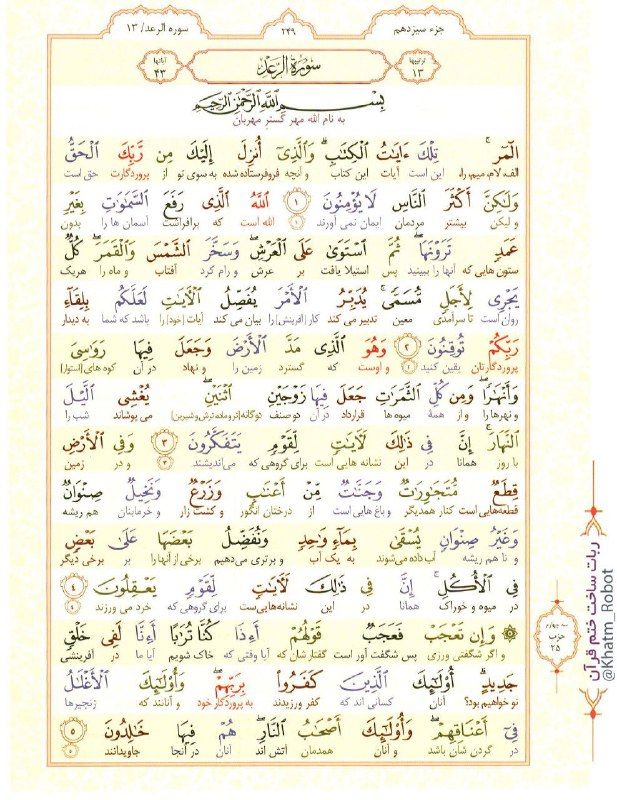 جزء سیزدهم
۲۴۹
سوره الرعد/ ۱۳
ترتیبها
۱۳
سورة الرعد
آیاتها
۴۳
بِسْمِ اللَّهِ الرَّحْمَٰنِ الرَّحِيمِ
به نام الله مهر گستر مهربان
الٓمٓر ۚ تِلْكَ ءَايَٰتُ ٱلْكِتَٰبِ ۗ وَٱلَّذِىٓ أُنزِلَ إِلَيْكَ مِن رَّبِّكَ ٱلْحَقُّ
الف، لام، میم، را، این است آیات این کتاب و آنچه فروفرستاده شده به سوی تو از پروردگارت حق است
وَلَٰكِنَّ أَكْثَرَ ٱلنَّاسِ لَا يُؤْمِنُونَ ۱ ٱللَّهُ ٱلَّذِى رَفَعَ ٱلسَّمَٰوَٰتِ بِغَيْرِ
و لیکن بیشتر مردمان ایمان نمی آورند ۱ الله است که برافراشت آسمان ها را بدون
عَمَدٍ تَرَوْنَهَا ۖ ثُمَّ ٱسْتَوَىٰ عَلَى ٱلْعَرْشِ ۖ وَسَخَّرَ ٱلشَّمْسَ وَٱلْقَمَرَ ۖ كُلٌّ
ستون هایی که آنها را ببینید پس استیلا یافت بر عرش و رام کرد آفتاب و ماه را هریک
يَجْرِى لِأَجَلٍ مُّسَمًّى ۚ يُدَبِّرُ ٱلْأَمْرَ يُفَصِّلُ ٱلْءَايَٰتِ لَعَلَّكُم بِلِقَآءِ
روان است تا سرآمدی معین تدبیر می کند کار [آفرینش] را بیان می کند آیات [خود] را باشد که شما به دیدار
رَبِّكُمْ تُوقِنُونَ ۲ وَهُوَ ٱلَّذِى مَدَّ ٱلْأَرْضَ وَجَعَلَ فِيهَا رَوَٰسِىَ
پروردگارتان یقین کنید ۲ و اوست که گسترد زمین را و نهاد در آن کوه های [استوار]
وَأَنْهَٰرًا ۖ وَمِن كُلِّ ٱلثَّمَرَٰتِ جَعَلَ فِيهَا زَوْجَيْنِ ٱثْنَيْنِ ۖ يُغْشِى ٱلَّيْلَ
و نهرها را و از همهٔ میوه ها قرارداد در آن دو صنف دوگانه می پوشاند شب را
ٱلنَّهَارَ ۚ إِنَّ فِى ذَٰلِكَ لَءَايَٰتٍ لِّقَوْمٍ يَتَفَكَّرُونَ ۳ وَفِى ٱلْأَرْضِ
با روز همانا در این نشانه هایی است برای گروهی که می‌اندیشند ۳ و در زمین
قِطَعٌ مُّتَجَٰوِرَٰتٌ وَجَنَّٰتٌ مِّنْ أَعْنَٰبٍ وَزَرْعٌ وَنَخِيلٌ صِنْوَانٌ
قطعه‌هایی است کنار همدیگر و باغ هایی است از درختان انگور و کشت زار و خرمابنان هم ریشه
وَغَيْرُ صِنْوَانٍ يُسْقَىٰ بِمَآءٍ وَٰحِدٍ وَنُفَضِّلُ بَعْضَهَا عَلَىٰ بَعْضٍ
و نا هم ریشه آب داده می‌شوند به یک آب و برتری می‌دهیم برخی از آنها را بر برخی دیگر
فِى ٱلْأُكُلِ ۚ إِنَّ فِى ذَٰلِكَ لَءَايَٰتٍ لِّقَوْمٍ يَعْقِلُونَ ۴
در میوه و خوراک همانا در این نشانه‌هایی‌ست برای گروهی که خرد می ورزند ۴
۞ وَإِن تَعْجَبْ فَعَجَبٌ قَوْلُهُمْ أَءِذَا كُنَّا تُرَٰبًا أَءِنَّا لَفِى خَلْقٍ
و اگر شگفتی ورزی پس شگفت آور است گفتار شان که آیا وقتی که خاک شویم آیا ما در آفرینشی
جَدِيدٍ ۗ أُو۟لَٰٓئِكَ ٱلَّذِينَ كَفَرُوا۟ بِرَبِّهِمْ ۖ وَأُو۟لَٰٓئِكَ ٱلْأَغْلَٰلُ
نو خواهیم بود؟ آنان کسانی اند که کفر ورزیدند به پروردگار خود و آنانند که زنجیرها
فِىٓ أَعْنَاقِهِمْ ۖ وَأُو۟لَٰٓئِكَ أَصْحَٰبُ ٱلنَّارِ ۖ هُمْ فِيهَا خَٰلِدُونَ ۵
در گردن شان باشد و آنان همدمان آتش اند آنان در آنجا جاویدانند ۵
سه چهارم
حزب
۲۵
ربات ساخت ختم قرآن
@Khatm_Robot